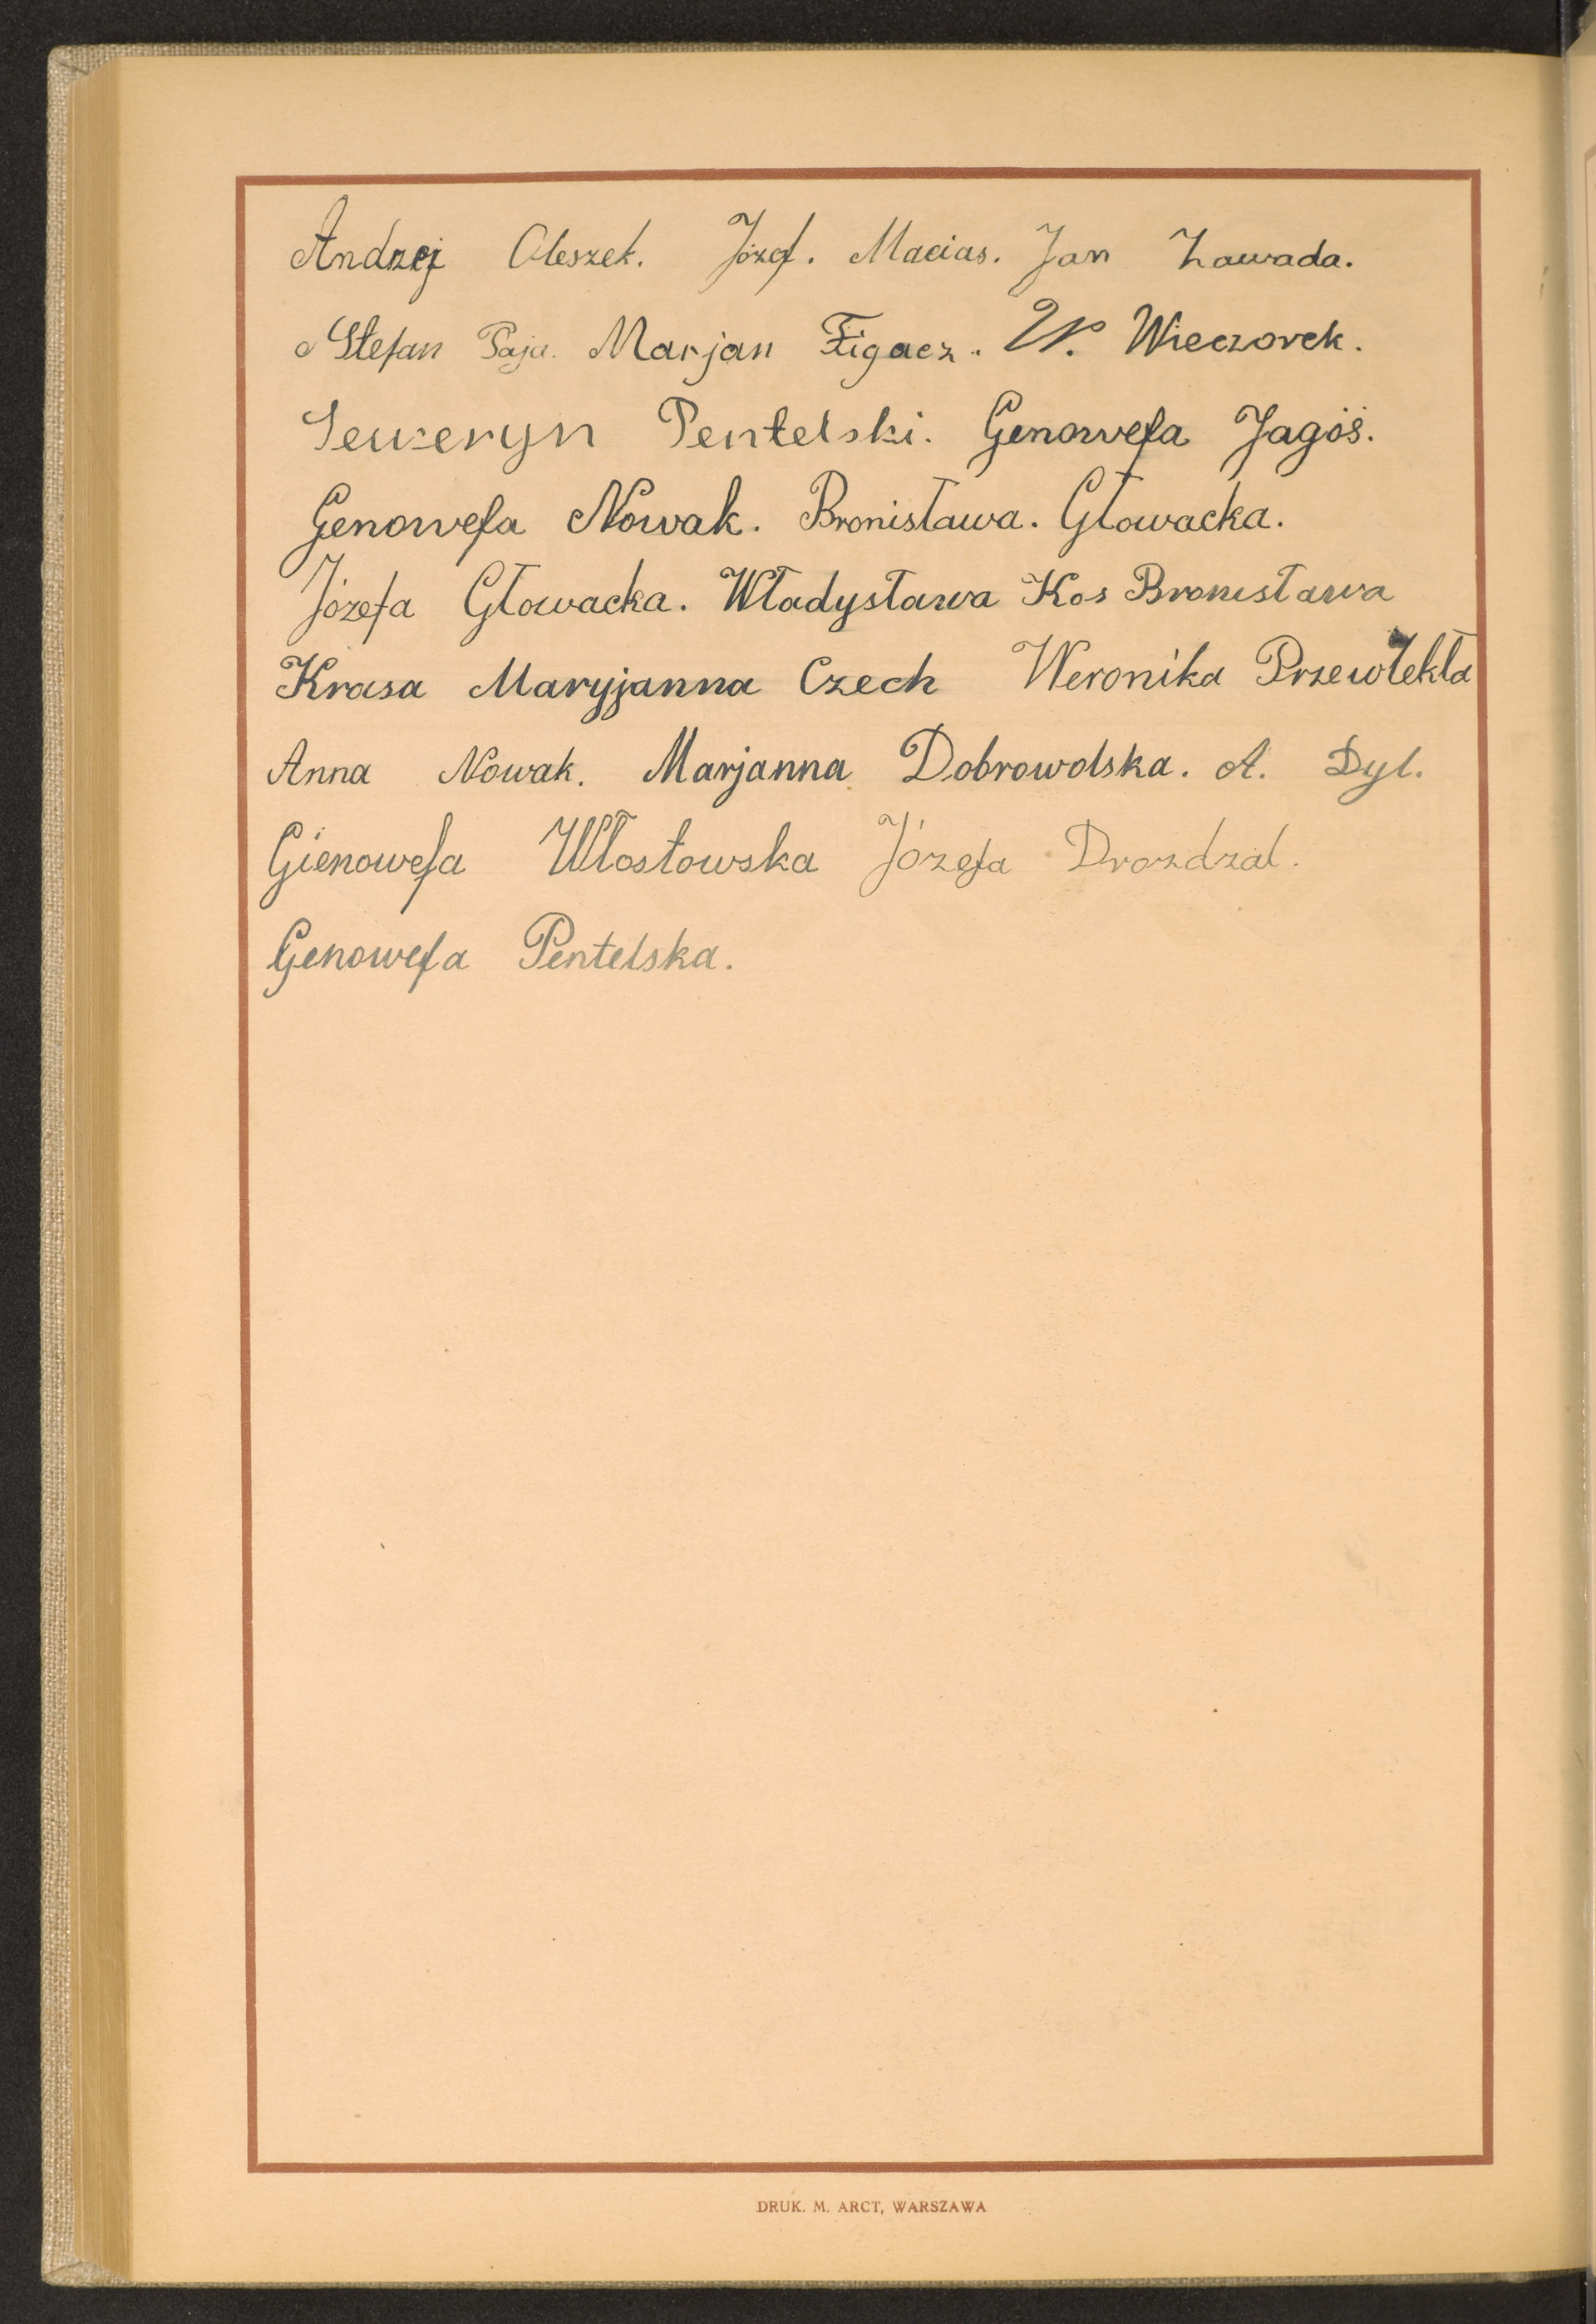 Andrzej Oleszek. Józef. Macias. Jan Zawada.
Stefan Paja. Marjan Figacz. W. Wieczorek.
Seweryn Pentelski. Genowefa Jagóś.
Genowefa Nowak. Bronisława. Głowacka.
Józefa Głowacka. Władysława Kos Bronisława
Krasa Maryjanna Czech Weronika Przewłekła
Anna Nowak. Marjanna Dobrowolska. A. Dyl.
Gienowefa Włostowska Józefa Drozdzal.
Genowefa Pentelska.
DRUK. M. ARCT, WARSZAWA